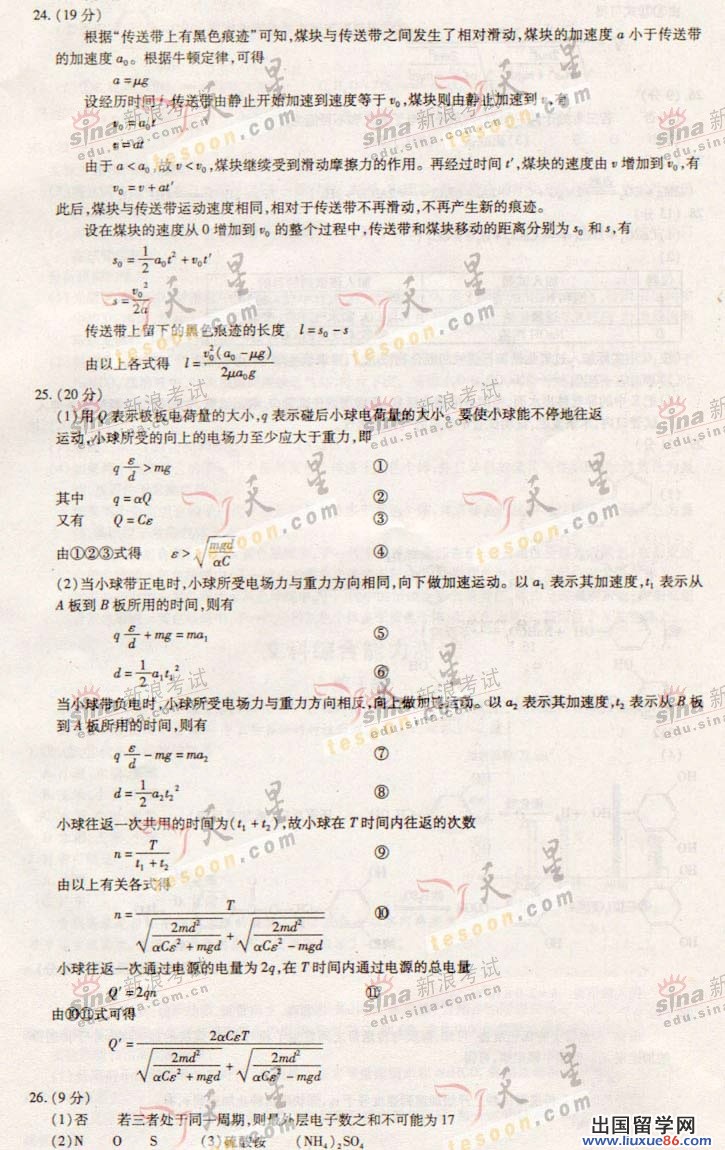 24. (19 分)
根据“传送带上有黑色痕迹”可知,煤块与传送带之间发生了相对滑动,煤块的加速度 a 小于传送带
的加速度 a₀。根据牛顿定律,可得
a=μg
设经历时间 t,传送带由静止开始加速到速度等于 v₀,煤块则由静止加速到 v,有
v₀=a₀t
v=at
由于 a<a₀,故 v<v₀,煤块继续受到滑动摩擦力的作用。再经过时间 t′,煤块的速度由 v 增加到 v₀,有
v₀=v+at′
此后,煤块与传送带运动速度相同,相对于传送带不再滑动,不再产生新的痕迹。
设在煤块的速度从 0 增加到 v₀ 的整个过程中,传送带和煤块移动的距离分别为 s₀ 和 s,有
s₀=1/2 a₀t²+v₀t′
s=v₀²/2a
传送带上留下的黑色痕迹的长度 l=s₀-s
由以上各式得 l=v₀²(a₀-μg)/2μa₀g
25. (20 分)
(1)用 Q 表示极板电荷量的大小,q 表示碰后小球电荷量的大小。要使小球能不停地往返
运动,小球所受的向上的电场力至少应大于重力,即
q ε/d >mg ①
其中 q=αQ ②
又有 Q=Cε ③
由①②③式得 ε>√(mgd/αC) ④
(2)当小球带正电时,小球所受电场力与重力方向相同,向下做加速运动。以 a₁ 表示其加速度,t₁ 表示从
A 板到 B 板所用的时间,则有
q ε/d +mg=ma₁ ⑤
d=1/2 a₁t₁² ⑥
当小球带负电时,小球所受电场力与重力方向相反,向上做加速运动。以 a₂ 表示其加速度,t₂ 表示从 B 板
到 A 板所用的时间,则有
q ε/d -mg=ma₂ ⑦
d=1/2 a₂t₂² ⑧
小球往返一次共用的时间为(t₁+t₂),故小球在 T 时间内往返的次数
n=T/(t₁+t₂) ⑨
由以上有关各式得
n=T/(√(2md²/(αCε²+mgd))+√(2md²/(αCε²-mgd))) ⑩
小球往返一次通过电源的电量为 2q,在 T 时间内通过电源的总电量
Q′=2qn ⑪
由⑩⑪式可得
Q′=2αCεT/(√(2md²/(αCε²+mgd))+√(2md²/(αCε²-mgd)))
26. (9 分)
(1)否 若三者处于同一周期,则最外层电子数之和不可能为 17
(2)N O S (3)硫酸铵 (NH₄)₂SO₄
天星
tesoon.com
sina 新浪考试
edu.sina.com.cn
出国留学网
www.liuxue86.com